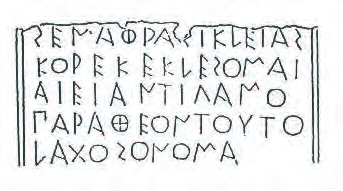 ΣΕΜΑΦΡΑΣΙΚΛΕΙΑΣ
ΚΟΡΕΚΕΚΛΕΣΟΜΑΙ
ΑΙΕΙΑΝΤΙΓΑΜΟ
ΠΑΡΑΘΕΟΝΤΟΥΤΟ
ΛΑΧΟΣΟΝΟΜΑ